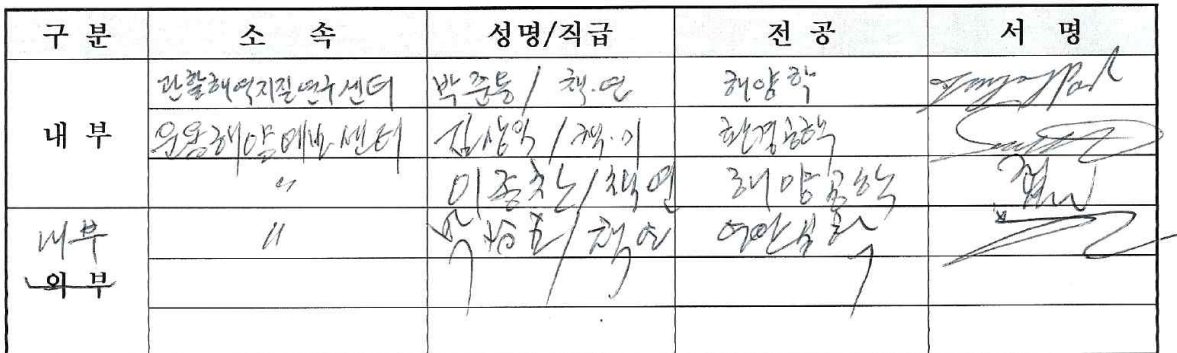 구 분 소 속 성명/직급 전 공 서 명
관할해역지질연구센터 박준용 / 책.연 해양학
내 부 운용해양예보센터 김상익 / 책.기 환경공학
" 이종찬 / 책연 해양공학
내부 " / 책연
외 부